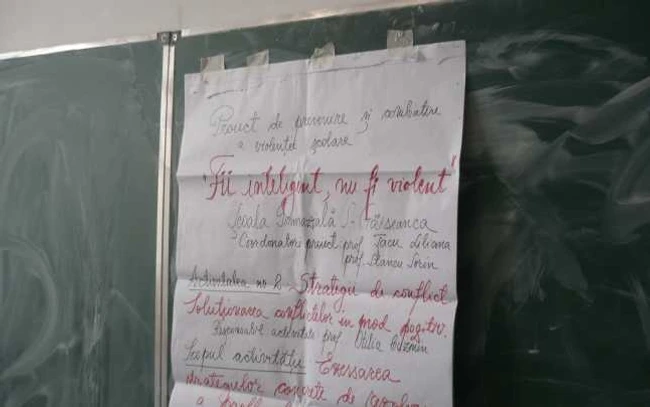 Proiect de prevenire și combatere
a violenței școlare
"Fii inteligent, nu fi violent"!
Școala Gimnazială
Coordonatori proiect prof. Tacu Liliana
prof. Stancu Sorin
Activitatea nr 2 Strategii de conflict
Soluționarea conflictelor în mod pozitiv.
Responsabil activitate prof
Scopul activității Exersarea
strategiilor concrete de
a